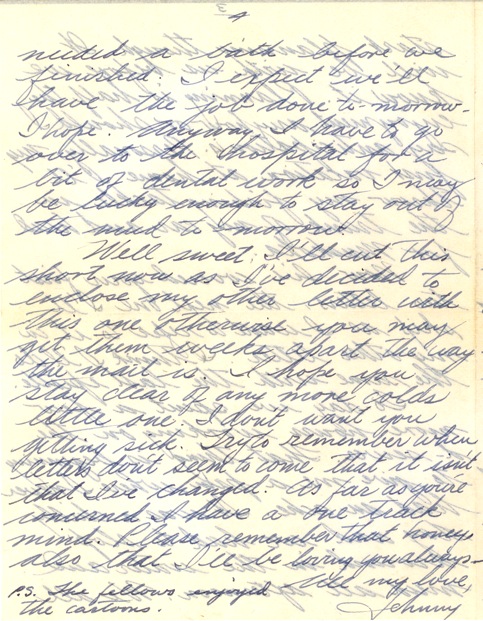 4
needed a bath before we
finished. I expect we'll
have the job done to-morrow-
I hope. Anyway I have to go
over to the hospital for a
bit of dental work so I may
be lucky enough to stay out of
the mud to-morrow.
Well sweet, I'll cut this
short now as I've decided to
enclose my other letter with
this one otherwise you may
get them weeks apart the way
the mail is. I hope you
stay clear of any more colds
little one I don't want you
getting sick. Try to remember when
letters don't seem to come that it isn't
that I've changed. As far as you're
concerned I have a one track
mind. Please remember that honey
also that I'll be loving you always-
All my love,
Johnny
P.S. The fellows enjoyed
the cartoons.